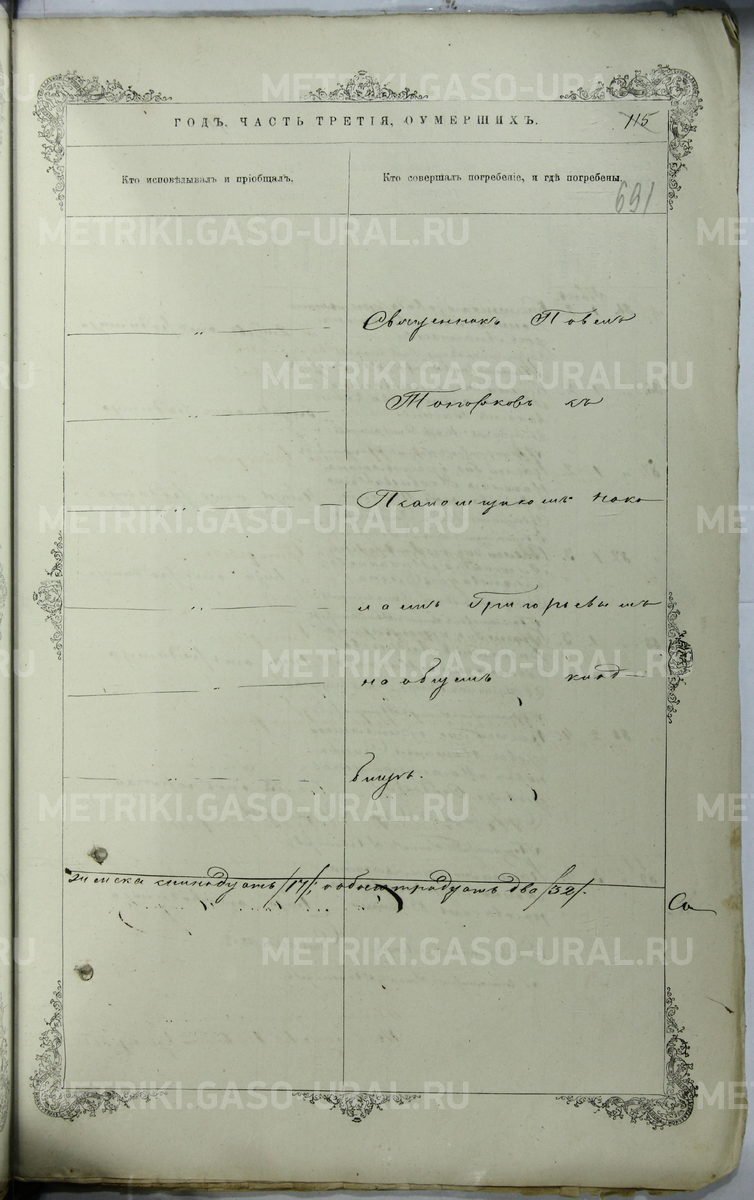 ГОДЪ. ЧАСТЬ ТРЕТІЯ, О УМЕРШИХЪ.
115
Кто исповѣдывалъ и пріобщалъ.
Кто совершалъ погребеніе, и гдѣ погребены.
691
Священникъ Павелъ
Топорковъ съ
Псаломщикомъ Нико
лаемъ Григорьевымъ
на общемъ клад-
бищѣ.
женска семнадцать /17/; обоего тридцать два /32/.
Св
METRIKI.GASO-URAL.RU